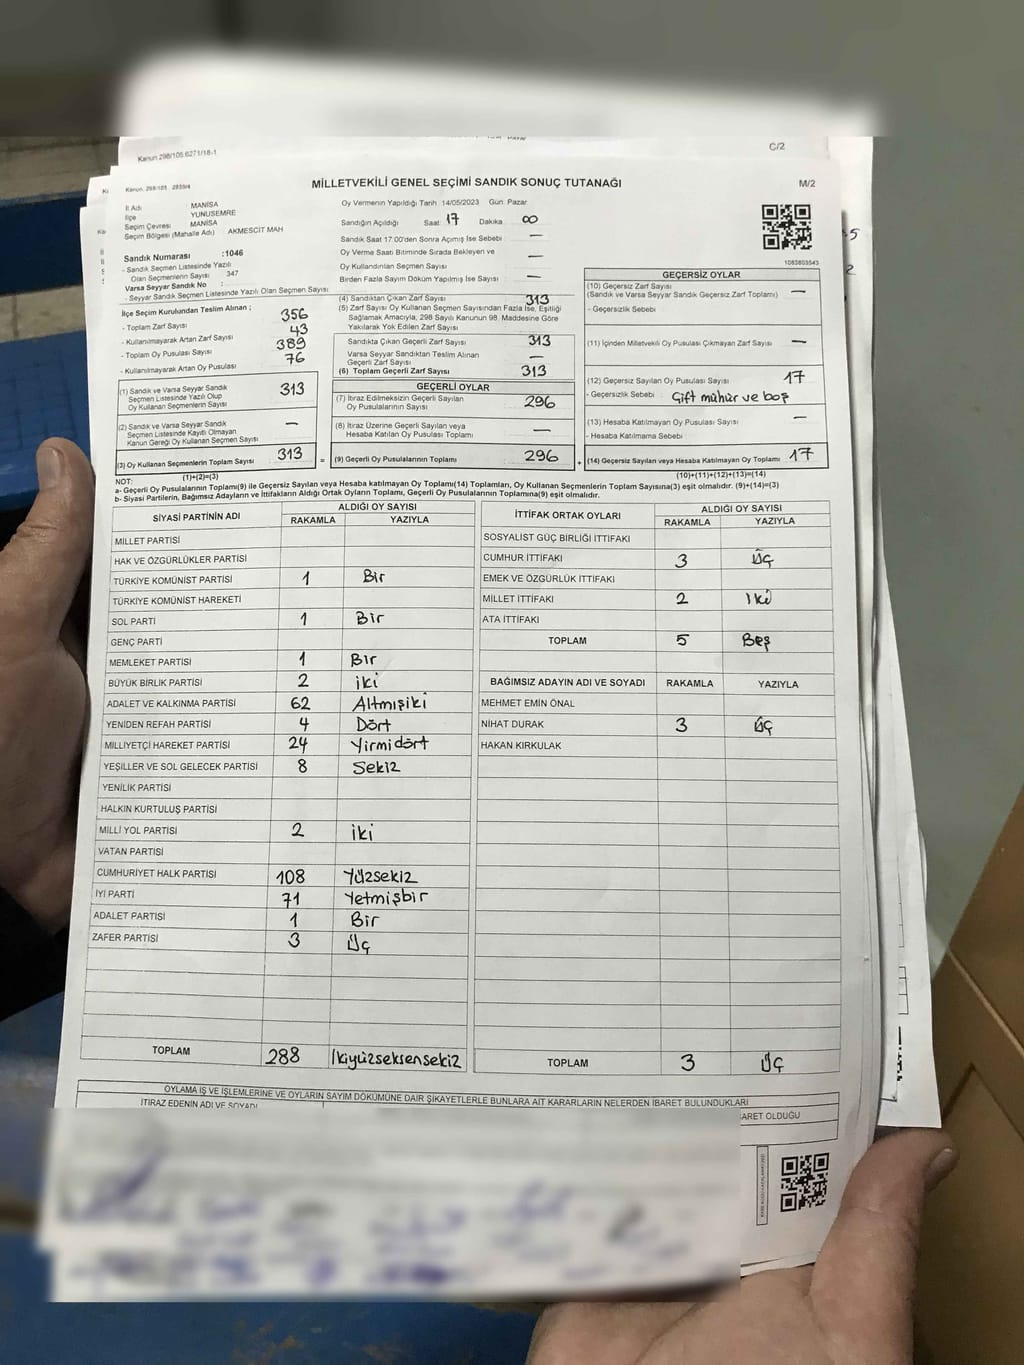 Kanun 298/105.6271/18-1
C/2
Kanun. 298/105. 2839/4
MİLLETVEKİLİ GENEL SEÇİMİ SANDIK SONUÇ TUTANAĞI
M/2
İl Adı MANİSA
İlçe YUNUSEMRE
Seçim Çevresi MANİSA
Seçim Bölgesi (Mahalle Adı) AKMESCİT MAH
Sandık Numarası :1046
- Sandık Seçmen Listesinde Yazılı
Olan Seçmenlerin Sayısı 347
Varsa Seyyar Sandık No :
- Seyyar Sandık Seçmen Listesinde Yazılı Olan Seçmen Sayısı
Oy Vermenin Yapıldığı Tarih 14/05/2023 Gün: Pazar
Sandığın Açıldığı Saat 17 Dakika 00
Sandık Saat 17:00'den Sonra Açmış İse Sebebi —
Oy Verme Saati Bitiminde Sırada Bekleyen ve
Oy Kullandırılan Seçmen Sayısı —
Birden Fazla Sayım Döküm Yapılmış İse Sayısı —
1083803543
İlçe Seçim Kurulundan Teslim Alınan ;
- Toplam Zarf Sayısı 356
- Kullanılmayarak Artan Zarf Sayısı 43
- Toplam Oy Pusulası Sayısı 389
- Kullanılmayarak Artan Oy Pusulası 76
(1) Sandık ve Varsa Seyyar Sandık
Seçmen Listesinde Yazılı Olup
Oy Kullanan Seçmenlerin Sayısı 313
(2) Sandık ve Varsa Seyyar Sandık
Seçmen Listesinde Kayıtlı Olmayan
Kanun Gereği Oy Kullanan Seçmen Sayısı —
(3) Oy Kullanan Seçmenlerin Toplam Sayısı 313
(1)+(2)=(3)
(4) Sandıktan Çıkan Zarf Sayısı 313
(5) Zarf Sayısı Oy Kullanan Seçmen Sayısından Fazla İse, Eşitliği
Sağlamak Amacıyla, 298 Sayılı Kanunun 98. Maddesine Göre
Yakılarak Yok Edilen Zarf Sayısı
Sandıkta Çıkan Geçerli Zarf Sayısı 313
Varsa Seyyar Sandıktan Teslim Alınan
Geçerli Zarf Sayısı —
(6) Toplam Geçerli Zarf Sayısı 313
GEÇERLİ OYLAR
(7) İtiraz Edilmeksizin Geçerli Sayılan
Oy Pusulalarının Sayısı 296
(8) İtiraz Üzerine Geçerli Sayılan veya
Hesaba Katılan Oy Pusulası Toplamı —
= (9) Geçerli Oy Pusulalarının Toplamı 296
GEÇERSİZ OYLAR
(10) Geçersiz Zarf Sayısı
(Sandık ve Varsa Seyyar Sandık Geçersiz Zarf Toplamı) —
- Geçersizlik Sebebi :
(11) İçinden Milletvekili Oy Pusulası Çıkmayan Zarf Sayısı —
(12) Geçersiz Sayılan Oy Pusulası Sayısı 17
- Geçersizlik Sebebi : Çift mühür ve boş
(13) Hesaba Katılmayan Oy Pusulası Sayısı —
- Hesaba Katılmama Sebebi
+ (14) Geçersiz Sayılan veya Hesaba Katılmayan Oy Toplamı 17
(10)+(11)+(12)+(13)=(14)
NOT:
a- Geçerli Oy Pusulalarının Toplamı(9) ile Geçersiz Sayılan veya Hesaba katılmayan Oy Toplamı(14) Toplamları, Oy Kullanan Seçmenlerin Toplam Sayısına(3) eşit olmalıdır. (9)+(14)=(3)
b- Siyasi Partilerin, Bağımsız Adayların ve İttifakların Aldığı Ortak Oyların Toplamı, Geçerli Oy Pusulalarının Toplamına(9) eşit olmalıdır.
SİYASİ PARTİNİN ADI ALDIĞI OY SAYISI
RAKAMLA YAZIYLA
MİLLET PARTİSİ
HAK VE ÖZGÜRLÜKLER PARTİSİ
TÜRKİYE KOMÜNİST PARTİSİ 1 Bir
TÜRKİYE KOMÜNİST HAREKETİ
SOL PARTİ 1 Bir
GENÇ PARTİ
MEMLEKET PARTİSİ 1 Bir
BÜYÜK BİRLİK PARTİSİ 2 iki
ADALET VE KALKINMA PARTİSİ 62 Altmışiki
YENİDEN REFAH PARTİSİ 4 Dört
MİLLİYETÇİ HAREKET PARTİSİ 24 Yirmidört
YEŞİLLER VE SOL GELECEK PARTİSİ 8 Sekiz
YENİLİK PARTİSİ
HALKIN KURTULUŞ PARTİSİ
MİLLİ YOL PARTİSİ 2 iki
VATAN PARTİSİ
CUMHURİYET HALK PARTİSİ 108 Yüzsekiz
İYİ PARTİ 71 Yetmişbir
ADALET PARTİSİ 1 Bir
ZAFER PARTİSİ 3 Üç
TOPLAM 288 İkiyüzseksensekiz
İTTİFAK ORTAK OYLARI ALDIĞI OY SAYISI
RAKAMLA YAZIYLA
SOSYALİST GÜÇ BİRLİĞİ İTTİFAKI
CUMHUR İTTİFAKI 3 Üç
EMEK VE ÖZGÜRLÜK İTTİFAKI
MİLLET İTTİFAKI 2 İki
ATA İTTİFAKI
TOPLAM 5 Beş
BAĞIMSIZ ADAYIN ADI VE SOYADI RAKAMLA YAZIYLA
MEHMET EMİN ÖNAL
NİHAT DURAK 3 Üç
HAKAN KIRKULAK
TOPLAM 3 Üç
OYLAMA İŞ VE İŞLEMLERİNE VE OYLARIN SAYIM DÖKÜMÜNE DAİR ŞİKAYETLERLE BUNLARA AİT KARARLARIN NELERDEN İBARET BULUNDUKLARI
İTİRAZ EDENİN ADI VE SOYADI
BARET OLDUĞU